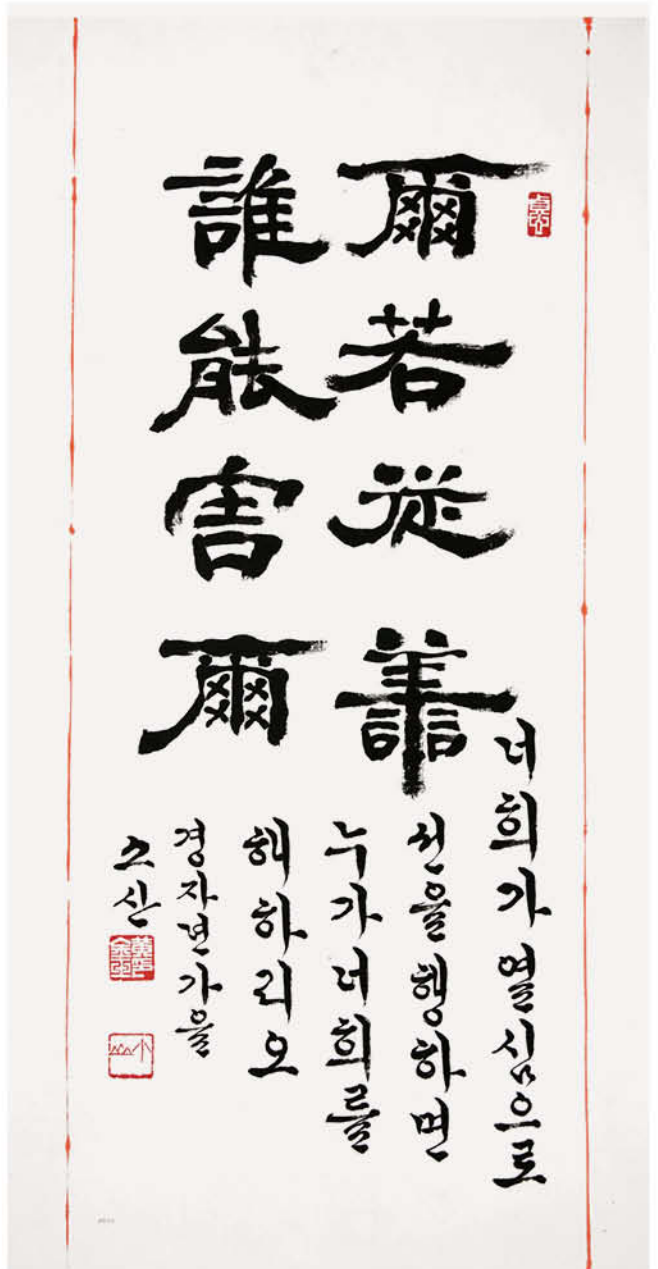 爾若從善
誰能害爾
너희가 열심으로
선을 행하면
누가 너희를
해하리오
경자년 가을
소산
小山